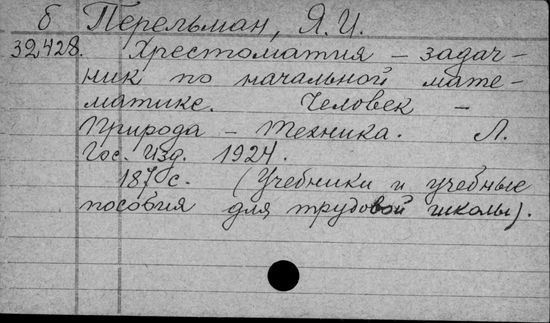 б Перельман, Я. И.
32428. Хрестоматия – задач-
ник по начальной мате-
матике. Человек –
Природа – Техника. Л.
Гос. Изд. 1924.
187 с. (Учебники и учебные
пособия для трудовой школы).